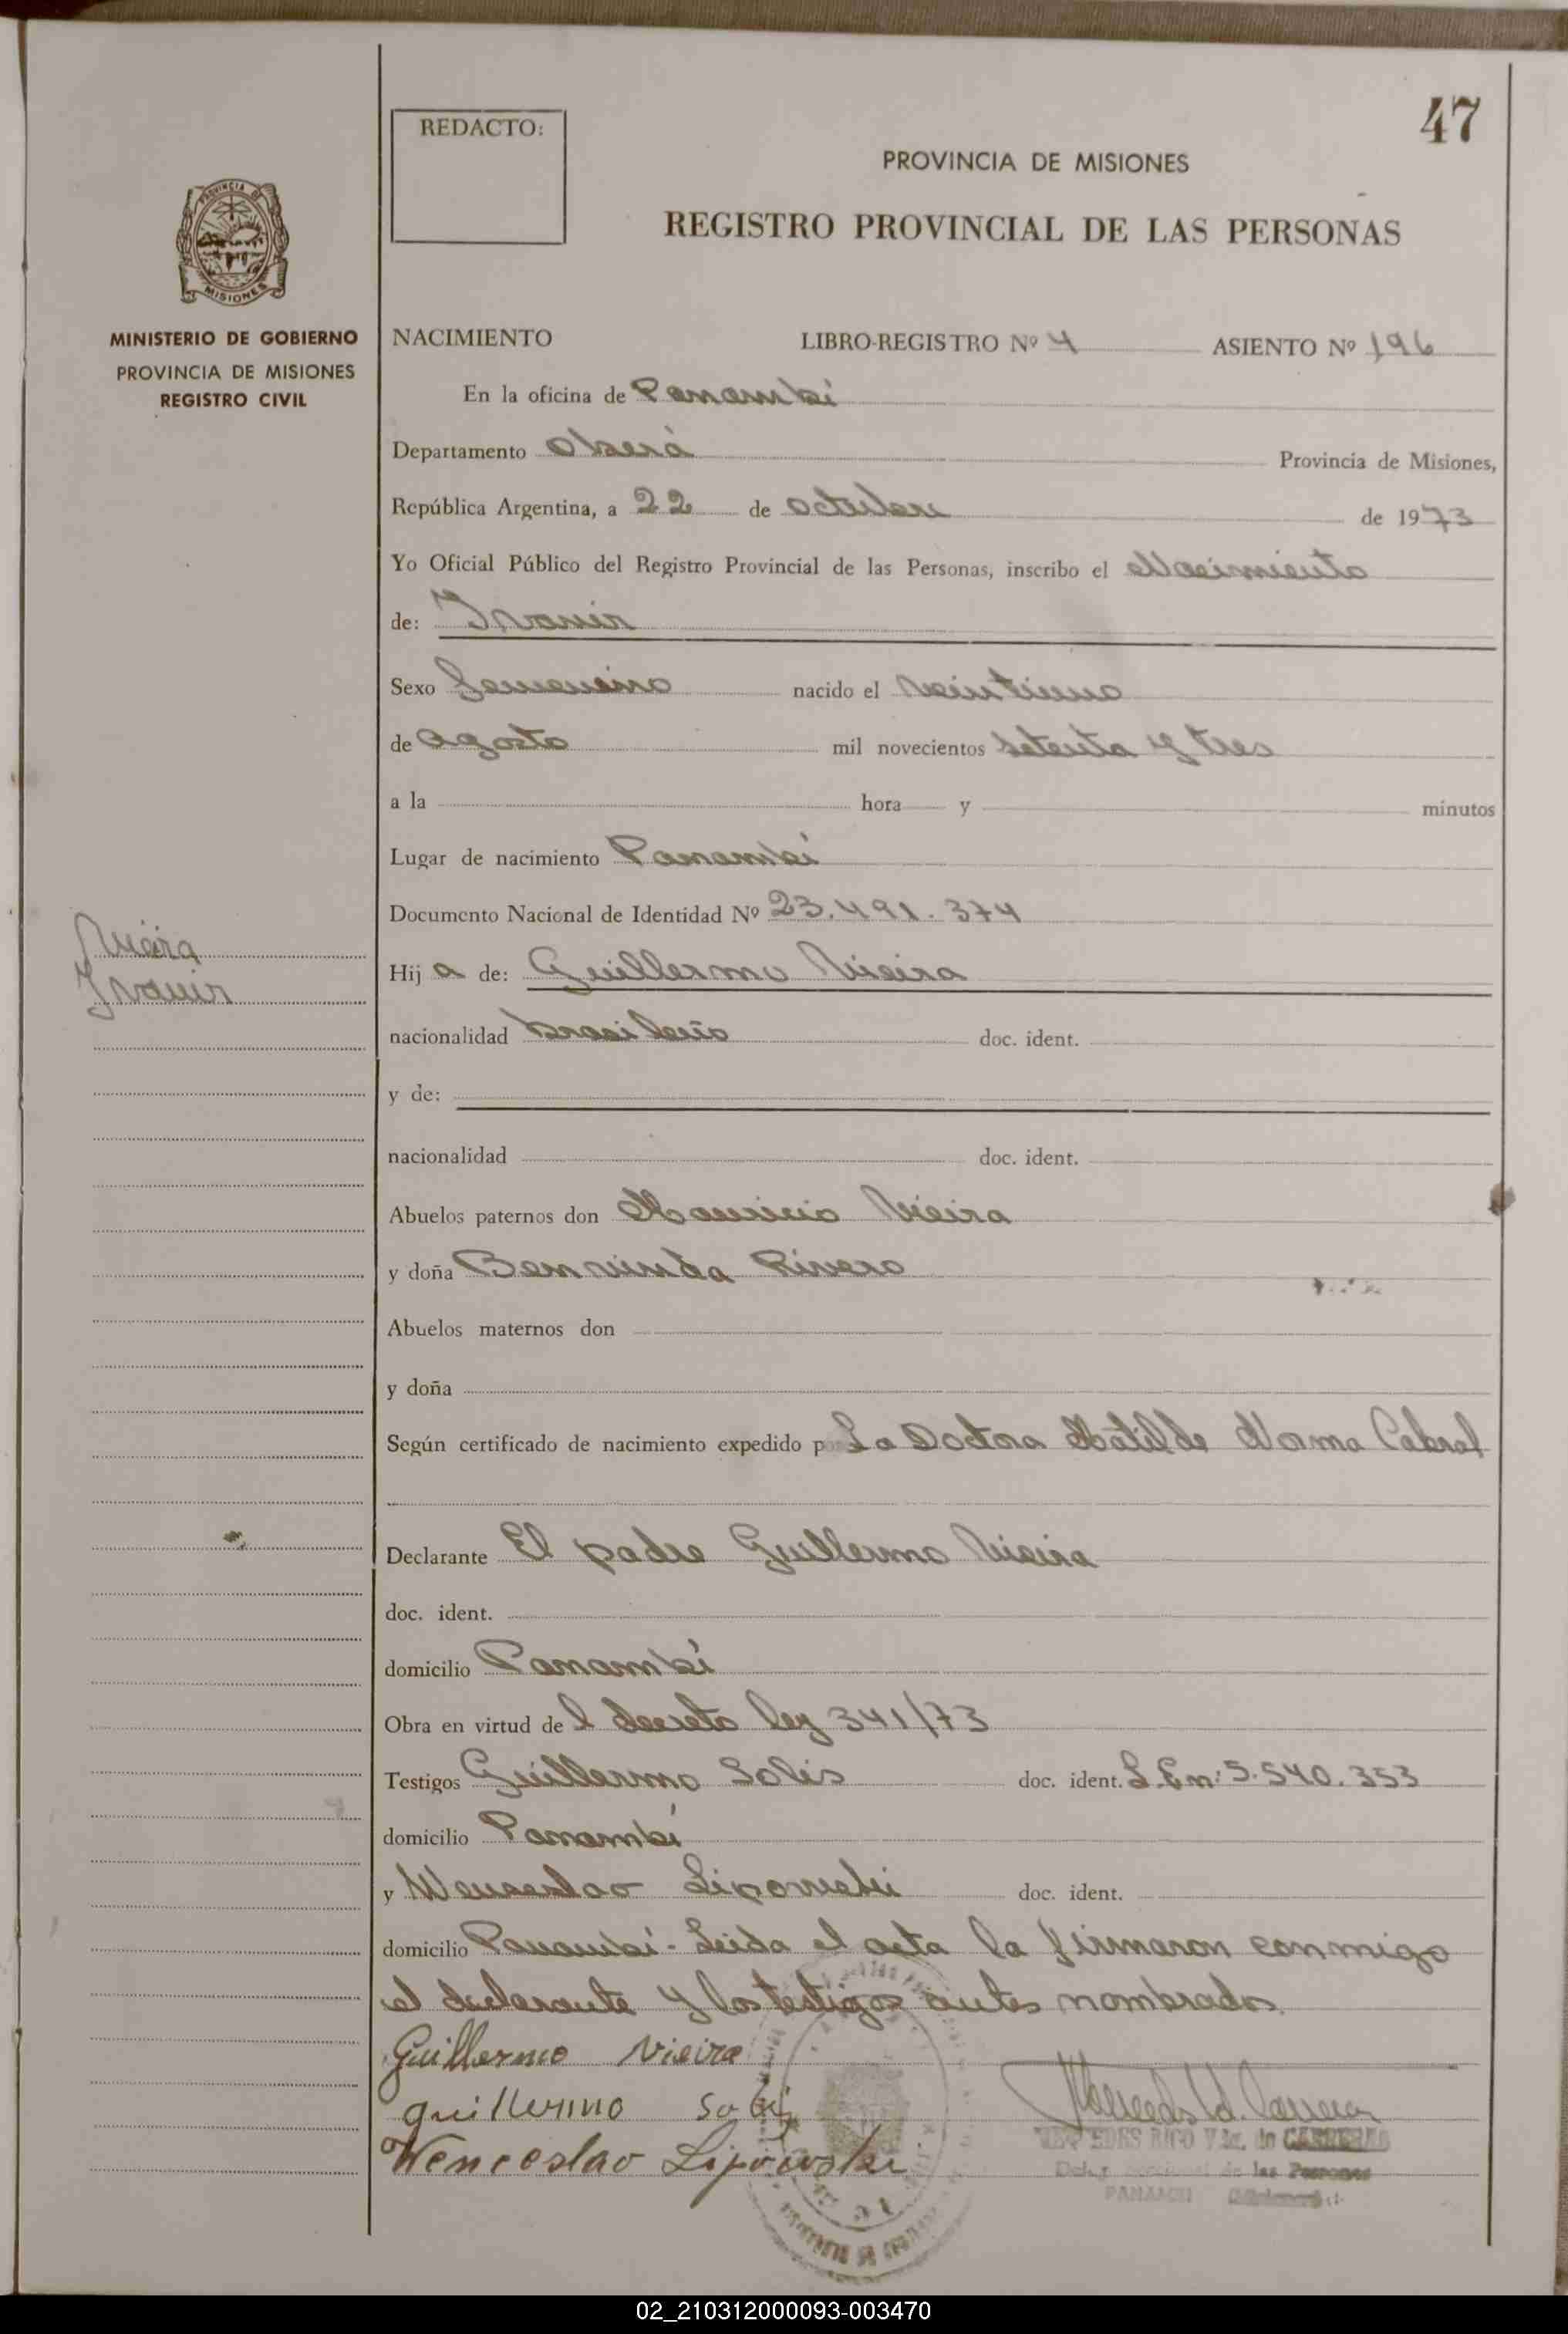 47
REDACTO:
PROVINCIA DE MISIONES
REGISTRO PROVINCIAL DE LAS PERSONAS
PROVINCIA DE
MISIONES
MINISTERIO DE GOBIERNO
PROVINCIA DE MISIONES
REGISTRO CIVIL
NACIMIENTO LIBRO-REGISTRO Nº 4 ASIENTO Nº 196
En la oficina de Panambí
Departamento Oberá Provincia de Misiones,
República Argentina, a 22 de octubre de 1973
Yo Oficial Público del Registro Provincial de las Personas, inscribo el Nacimiento
de: Ivanir
Sexo Femenino nacido el veintiuno
de agosto mil novecientos setenta y tres
a la hora y minutos
Lugar de nacimiento Panambí
Documento Nacional de Identidad Nº 23.491.374
Vieira
Ivanir
Hij a de: Guillermo Vieira
nacionalidad brasileño doc. ident.
y de:
nacionalidad doc. ident.
Abuelos paternos don Mauricio Vieira
y doña Benvinda Rivero
Abuelos maternos don
y doña
Según certificado de nacimiento expedido por La Doctora Matilde Norma Cabral
Declarante El padre Guillermo Vieira
doc. ident.
domicilio Panambí
Obra en virtud de l decreto ley 341/73
Testigos Guillermo Solis doc. ident. L.E nº 5.540.353
domicilio Panambí
y Wenceslao Lipowski doc. ident.
domicilio Panambí - Leida el acta la firmaron conmigo
el declarante y los testigos antes nombrados.
Guillermo Vieira
guillermo Solis
Wenceslao Lipowski
MERCEDES RICO Vda. de CARRERAS
de las Personas
PANAMBI
02_210312000093-003470